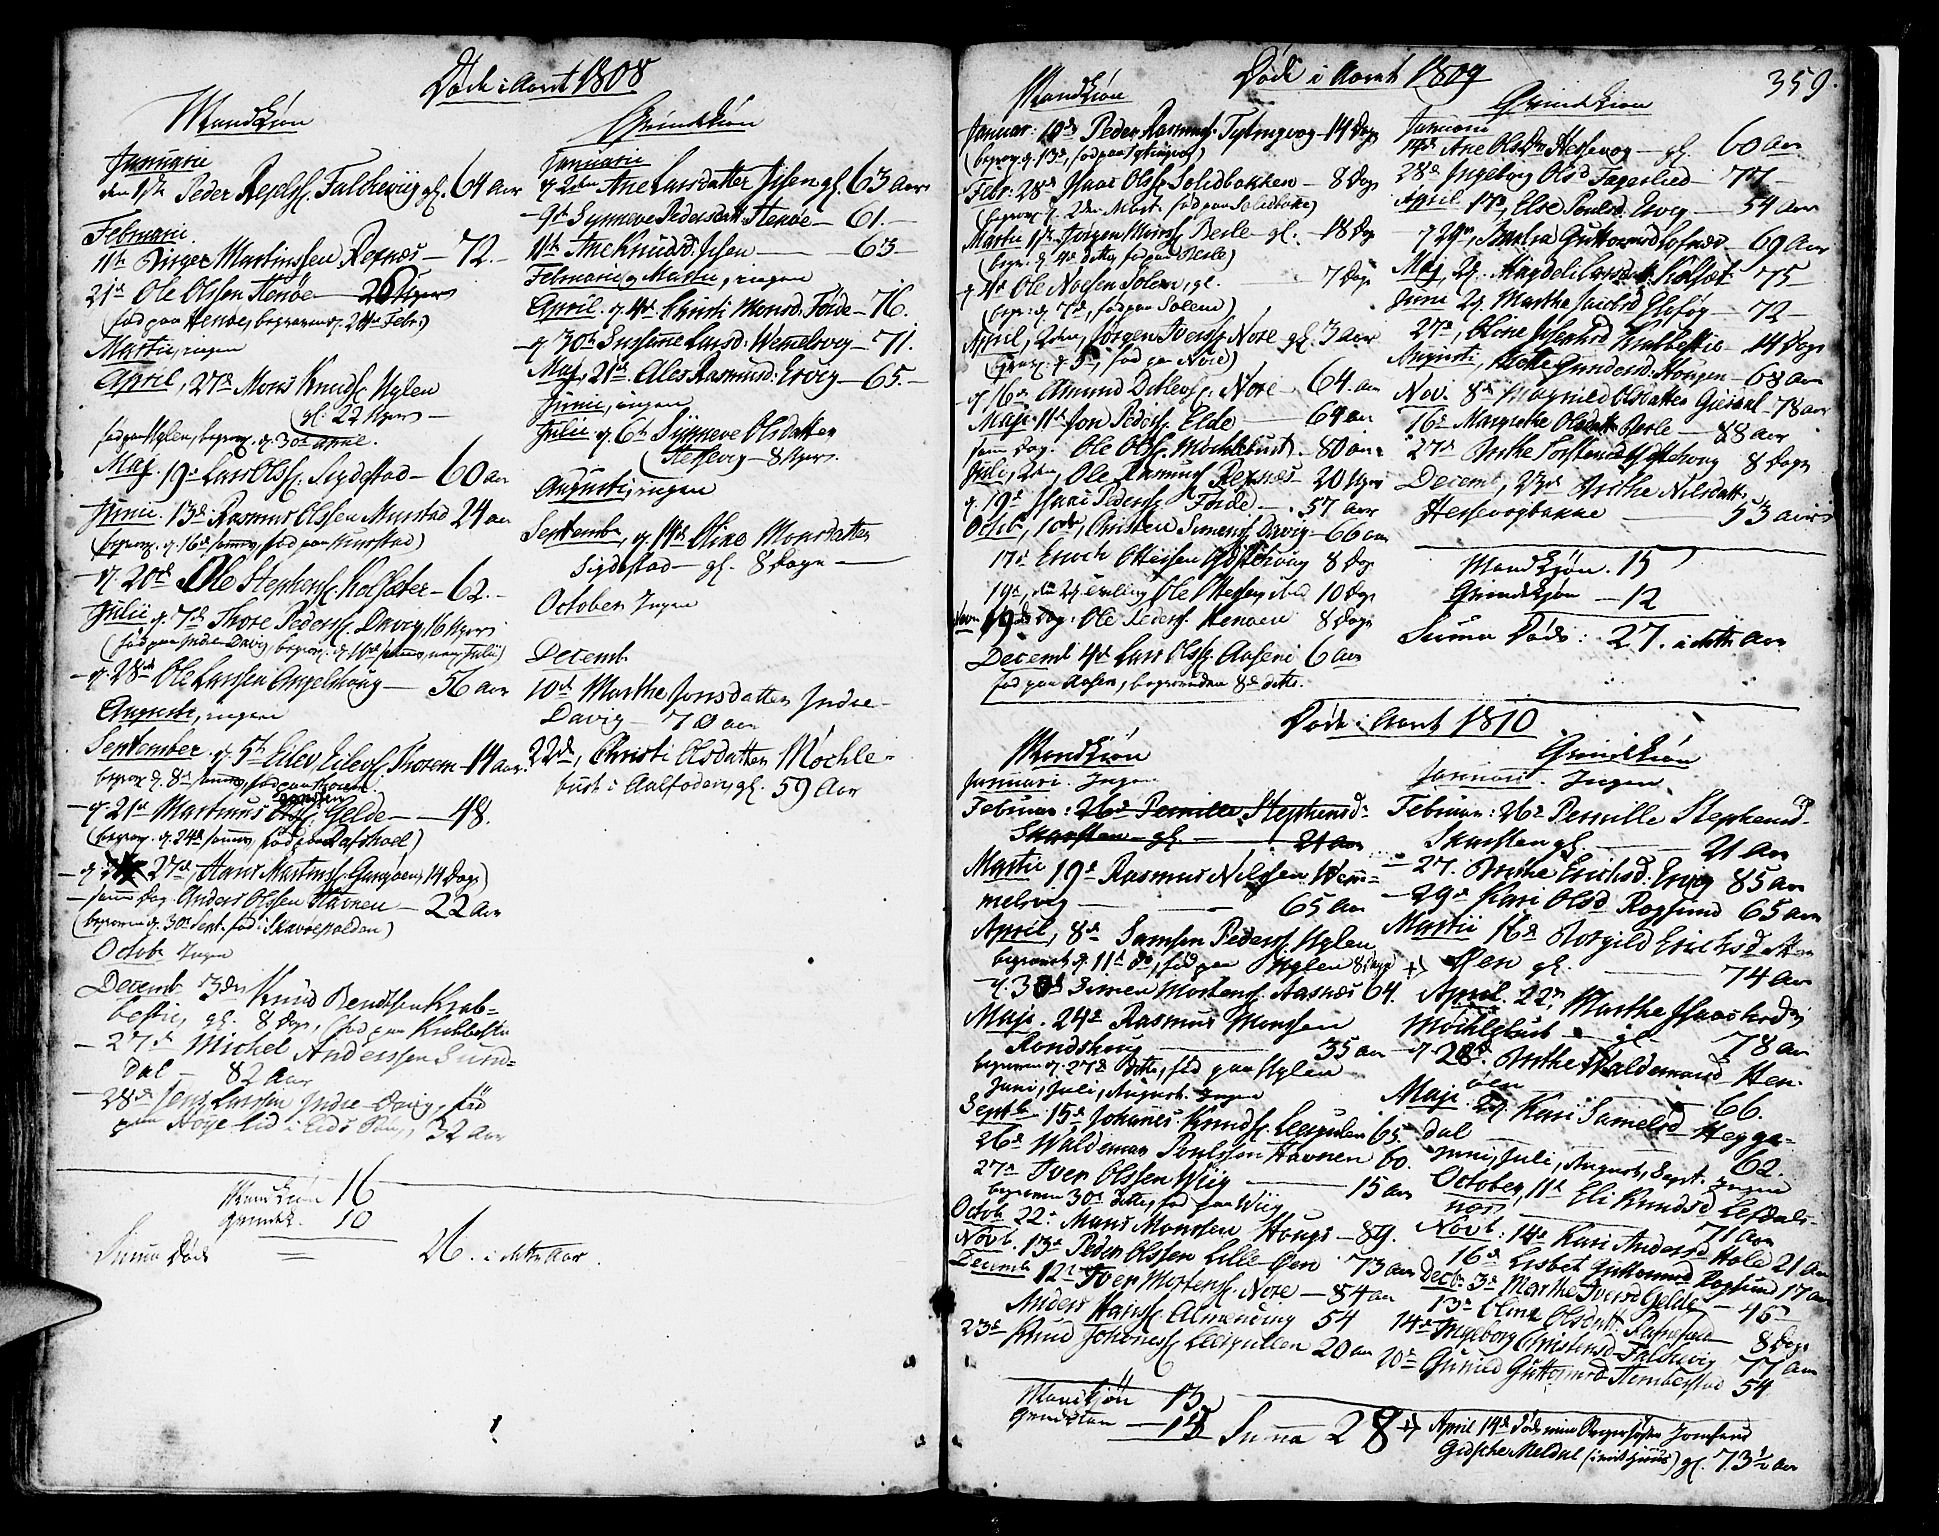 Døde i Aaret 1808
Mandkiøn
Januarii
Peder Falchevüg gl. 64 aar
Februarii
11te Birger Martinssen Rexnæs — 72.
21d Ole Olssen Henøe — 26 Uger
(fød paa Henøe, begraven d. 24de Febr.)
Martii, ingen
April, 27d Mons Knuds. Hylen
gl. 22 Uger —
fød paa Hylen, begrav. d. 30d April.
Maj. 19d Lars Ols. Sigdestad — 60 aar
Junii. 13d Rasmus Olssen Murstad 24 aar
(begrav. d. 16d fød paa Murstad)
— d. 20d Ole Stephens. Kolsæter — 62. —
Julii d. 7d Thore Peders. Davig 16 Uger
(fød paa Indre Davig, begrav. d. 10d Julii)
— d. 28d Ole Larssen Angelskaug — 56 aar
Augusti, ingen
September d. 5t Eilev Eilevs. Thorem — 14 aar
begrav. d. 8d fød paa Thorem.
— d. 21d Martinus Gelde — 48.
(begrav. d. 24d fød paa Rafshoel)
27d Hans Martins. 14 Dage)
— samme Dag Anders Olssen Havnen — 22 Aar
(begraven d. 30d Sept. fød i Skavøepolden)
Octobr Ingen
Decemb. 3die Knud Bendtsen Krab-
bestie, gl. 8 Dage, (fød paa Krabbestie
— 27d Michel Anderssen Sund-
dal — 82 aar
— 28d Jens Larssen Indre Davig, fød
paa Høye lid i Eids 32 Aar
Mandkiøn 16
Qvindek. 10
Suma Døde = 26. i dette Aar.
Qvindekiøn
Januarii
d. 2den Ane Larsdatter Isen gl. 63 Aar
— 9d Synneve Pedersdatt. Henøe — 61. —
11te Ane Knudsd. Isen — 63 —
Februarii og Martii, ingen
April d. 4d Christi Monsd. Førde — 76.
— d. 30te Susanne Larsd. Wemelsvig — 71.
Maj, 21d Ales Rasmusd. Ervig — 65. —
Junii, ingen
Julii d. 6te Synneve Olsdatter
Hessevig — 8 Uger.
Augusti, ingen
Septembr, d. 14d Oline Monsdatter
Sigdestad — gl. 8 Dage —
October Ingen
Decemb
10d Marthe Jonsdatter Indre-
Davig — 70 aar
22de, Christi Olsdatter Møchle-
bust i Aalfoden, gl. 59 Aar
Døde i Aaret 1809
359.
Mandkiøn
Januar: 10d, Peder Rasmus. — 14 Dage
(begrav. d. 13d, fød paa
Febr. 28d Isaac Ols. Solidbakken — 8 Dage
(begrav. d. 2den Mart. fød paa Solidbakke)
Martii 11te Jørgen Berle gl. — 18 Dage
(begr. d. 4d dette, fød paa Berle)
d. 4d Ole Nielsen Solem, gl. — 7 Dage
(begr. d. 7d, fød paa Solem)
April, 2den, Jørgen Ivers. Nore gl. 3 aar
(begrav. d. 5d, fød paa Nore)
d. 16d Amund Ditlevs. Nore — 64. aar
Maji 11te Jon Peders. Elde — 64 aar
samme Dag. Ole Ols. Møchlebust — 80 aar
Julii, 2den, Ole Rasmus. Rexnæs — 20 Uger
d. 19d Isaac Peders. Førde. — 57 aar
Octobr, 10de, Christen Simens. Davig — 66 aar
17d Enoch Ottesen 8 Dage
19d, Ole 10 Dage
19de Dag: Ole Peders. Henøen 8 Dage
Decemb 4d Lars Ols. Aasen 6 aar
fød paa Aasen, begraven den 8d dette.
Qvindekiøn
Januarii
14d Ane Olsdtr Hessevog — gl. 60 aar
28d Ingeborg Olsd Fagerlied — 77 —
April 17d, Else Poulsd. Ervig — 54 aar
d. 29d, Guttormsd. — 69 Aar
Maj, 29. Magdeli Larsdatt. Kolsæt — 75 —
Juni 29. Marthe Jacobsd — 72 —
27d, Oline Josephsd Krabbestie — 14 Dage
Augusti, Gundersd. Hougen — 68 aar
Nov. 8d Magnild Olsdatter — 78 aar
16d Margrethe Olsdatt. Berle — 88 aar
27d Brithe Torstensd 8 Dage
Decemb, 23d Brithe Nilsdatt.
Hessevogbakke — 53 aar
Mandkjøn. 15
Qvindekjøn — 12
Suma Døde: 27. i dette Aar
Døde i Aaret 1810
Mandkiøn
Januari. Ingen
Februar: 26d Pernille Stephensd.
Skarsten gl. — 21 aar
Martii 19d Rasmus Nilssen Wem-
melsvig — 65 aar
April, 8d Samsen Peders. Hylen
begraved d. 11d do, fød paa Hylen 8 Dage
d. 30d Simen Mortens. Aasnæs 64.
Maji. 24d Rasmus Monssen
Rondskoug — 35 aar
begraven d. 27d Ditto, fød paa Hylen
Juni, Juli, August. Ingen
Septb. 15d Johanes Knuds. Leerpulen 65.
26d Waldemar Poulssen Havnen 60.
27d Iver Olssen Wiig — 15 aar
begraven 30d dette, fød paa Wiig
Octob. 22d Mans Monssen Hougs — 89.
Novb. 13d Peder Olssen Lille Øen 73 aar
Decemb 12d Iver Mortens. Nore — 84 aar
Anders Hans. Almending 54
23d Knud Johanes. Leerpullen 20 aar
Mandkjøn 13
Qvindekiøn — 15
Suma 28
Qvindekiøn
Januari. Ingen
Februar: 26d Pernille Stephensd.
Skarsten gl. — 21 aar
— 27. Brithe Erichsd. Ervig 85 aar
— 29d Kari Olsd Rogsund 65 aar
Martii 16d Borgild Erichsd
+) Øen gl. — 74 aar
April. 22d Marthe Isaachsd. i
Møchlebust gl — 78 aar
d. 28d. Brithe Waldemarsd Hen-
øen — 66.
Maji 29. Kari Samelsd Hegge-
dal — 62.
Juni, Juli, August, Sept. Ingen
October, 11d Eli Knudsd Lefdals-
næs — 71 aar
Novb: 14d Kari Andersd Hole 21 aar
16d Lisbet Guttormsd Rogsund 17 aar
Decb. 3d Marthe Iversd Gelde — 45
13d Olina Olsdatt. — 8 Dage
14d Ingeborg Christensd Falchevig 77 aar
20d Gunild Guttormsd Hembestad 54
+) April 14d Døde min Jomfrue
Meldal gl. 73½ aar